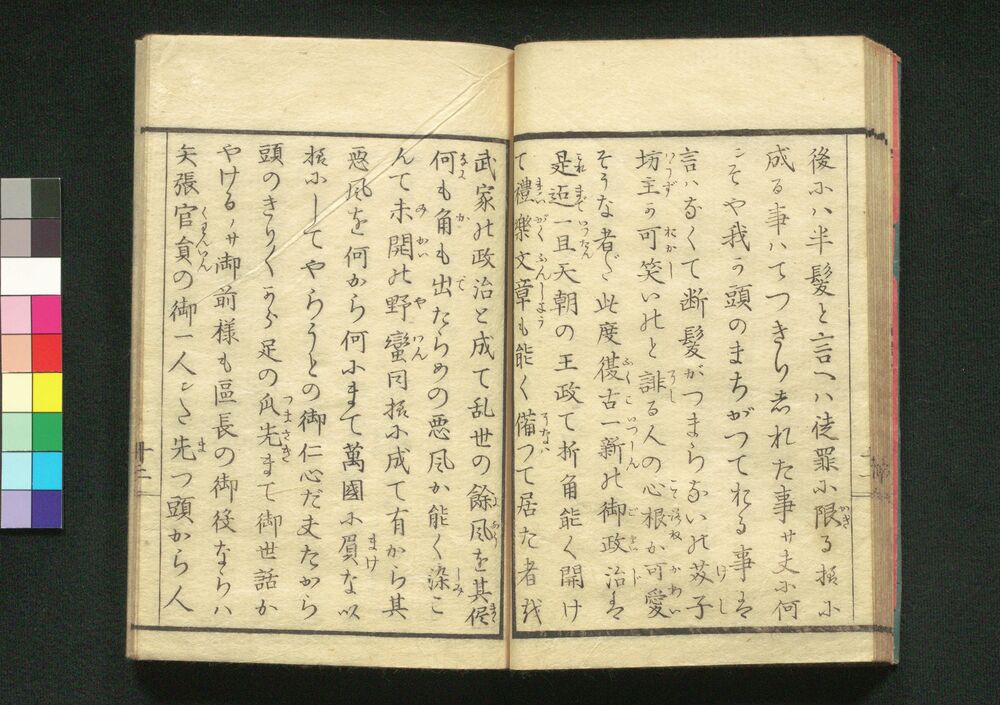 後ハ半髪と言へハ徒罪小限る様小
成る事ハてつきりきれた事サ夫小何
こそや我う頭のまちがつてれる事は
言ハなくて断髪がつまらないの芥子
坊主の可笑いのと誹る人の心根か可愛
そうな者だ此度復古一新の御政治は
是迄一旦天朝の王政て折角能く開け
て禮樂文章も能く備つて居た者を
武家の政治と成て乱世の餘風を其侭
何も角も出たらめの悪風か能く染こ
んて未開の野蛮同様小成て有から其
悪風を何から何小まて萬國小負な以
様小してやらうとの御仁心だ夫たから
頭のきりくから足の爪先まて御世話か
やけるのサ御前様も區長の御役ならハ
矢張官員の御一人だ先つ頭から人
十二